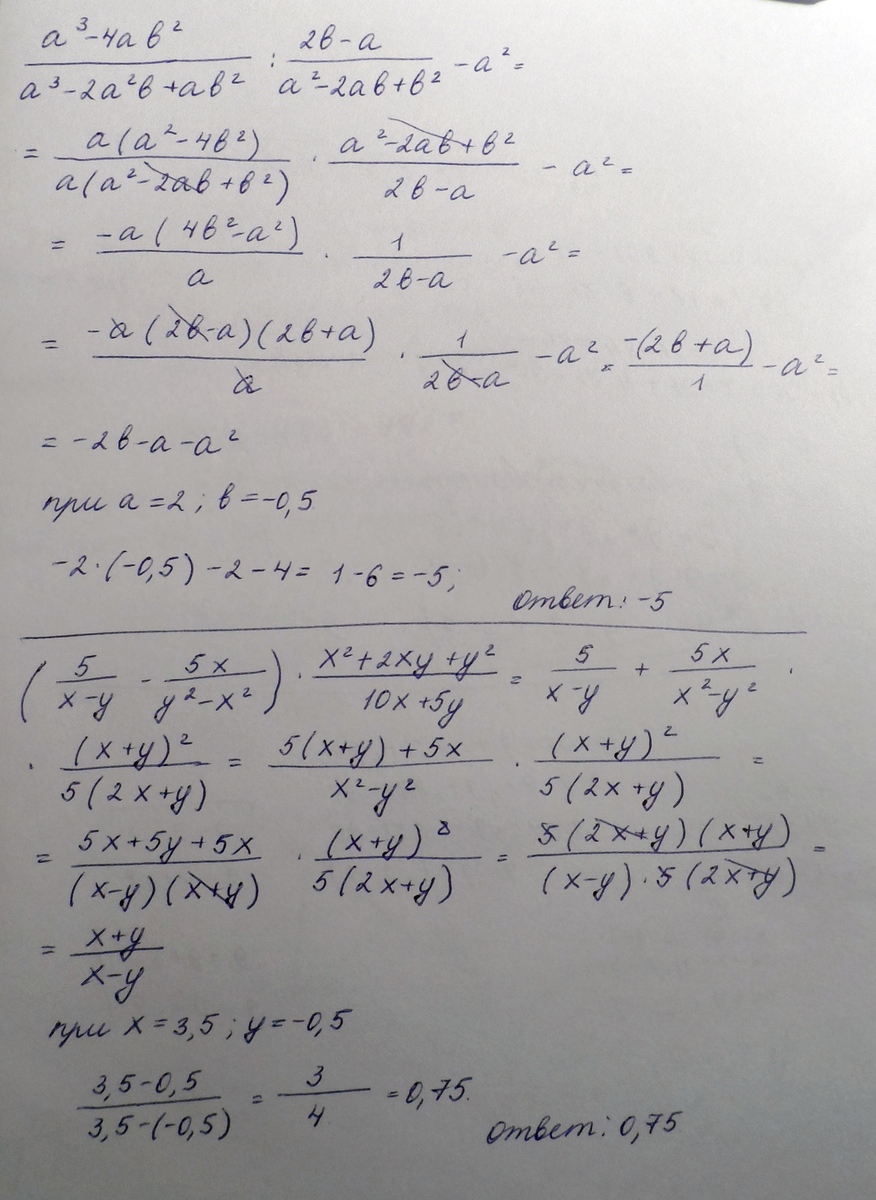 (a³-4ab²)/(a³-2a²b+ab²) : (2b-a)/(a²-2ab+b²) -a² =
= a(a²-4b²)/a(a²-2ab+b²) · (a²-2ab+b²)/(2b-a) - a² =
= -a(4b²-a²)/a · 1/(2b-a) -a² =
= -a(2b-a)(2b+a)/a · 1/(2b-a) -a² = -(2b+a)/1 -a² =
= -2b-a-a²
при a=2; b=-0,5
-2·(-0,5)-2-4= 1-6=-5;
ответ: -5
(5/(x-y) - 5x/(y²-x²)) · (x²+2xy+y²)/(10x+5y) = 5/(x-y) + 5x/(x²-y²) ·
· (x+y)²/5(2x+y) = (5(x+y)+5x)/(x²-y²) · (x+y)²/5(2x+y) =
= (5x+5y+5x)/(x-y)(x+y) · (x+y)²/5(2x+y) = 5(2x+y)(x+y)/(x-y)·5(2x+y) =
= (x+y)/(x-y)
при x=3,5; y=-0,5
(3,5-0,5)/(3,5-(-0,5)) = 3/4 =0,75.
ответ: 0,75